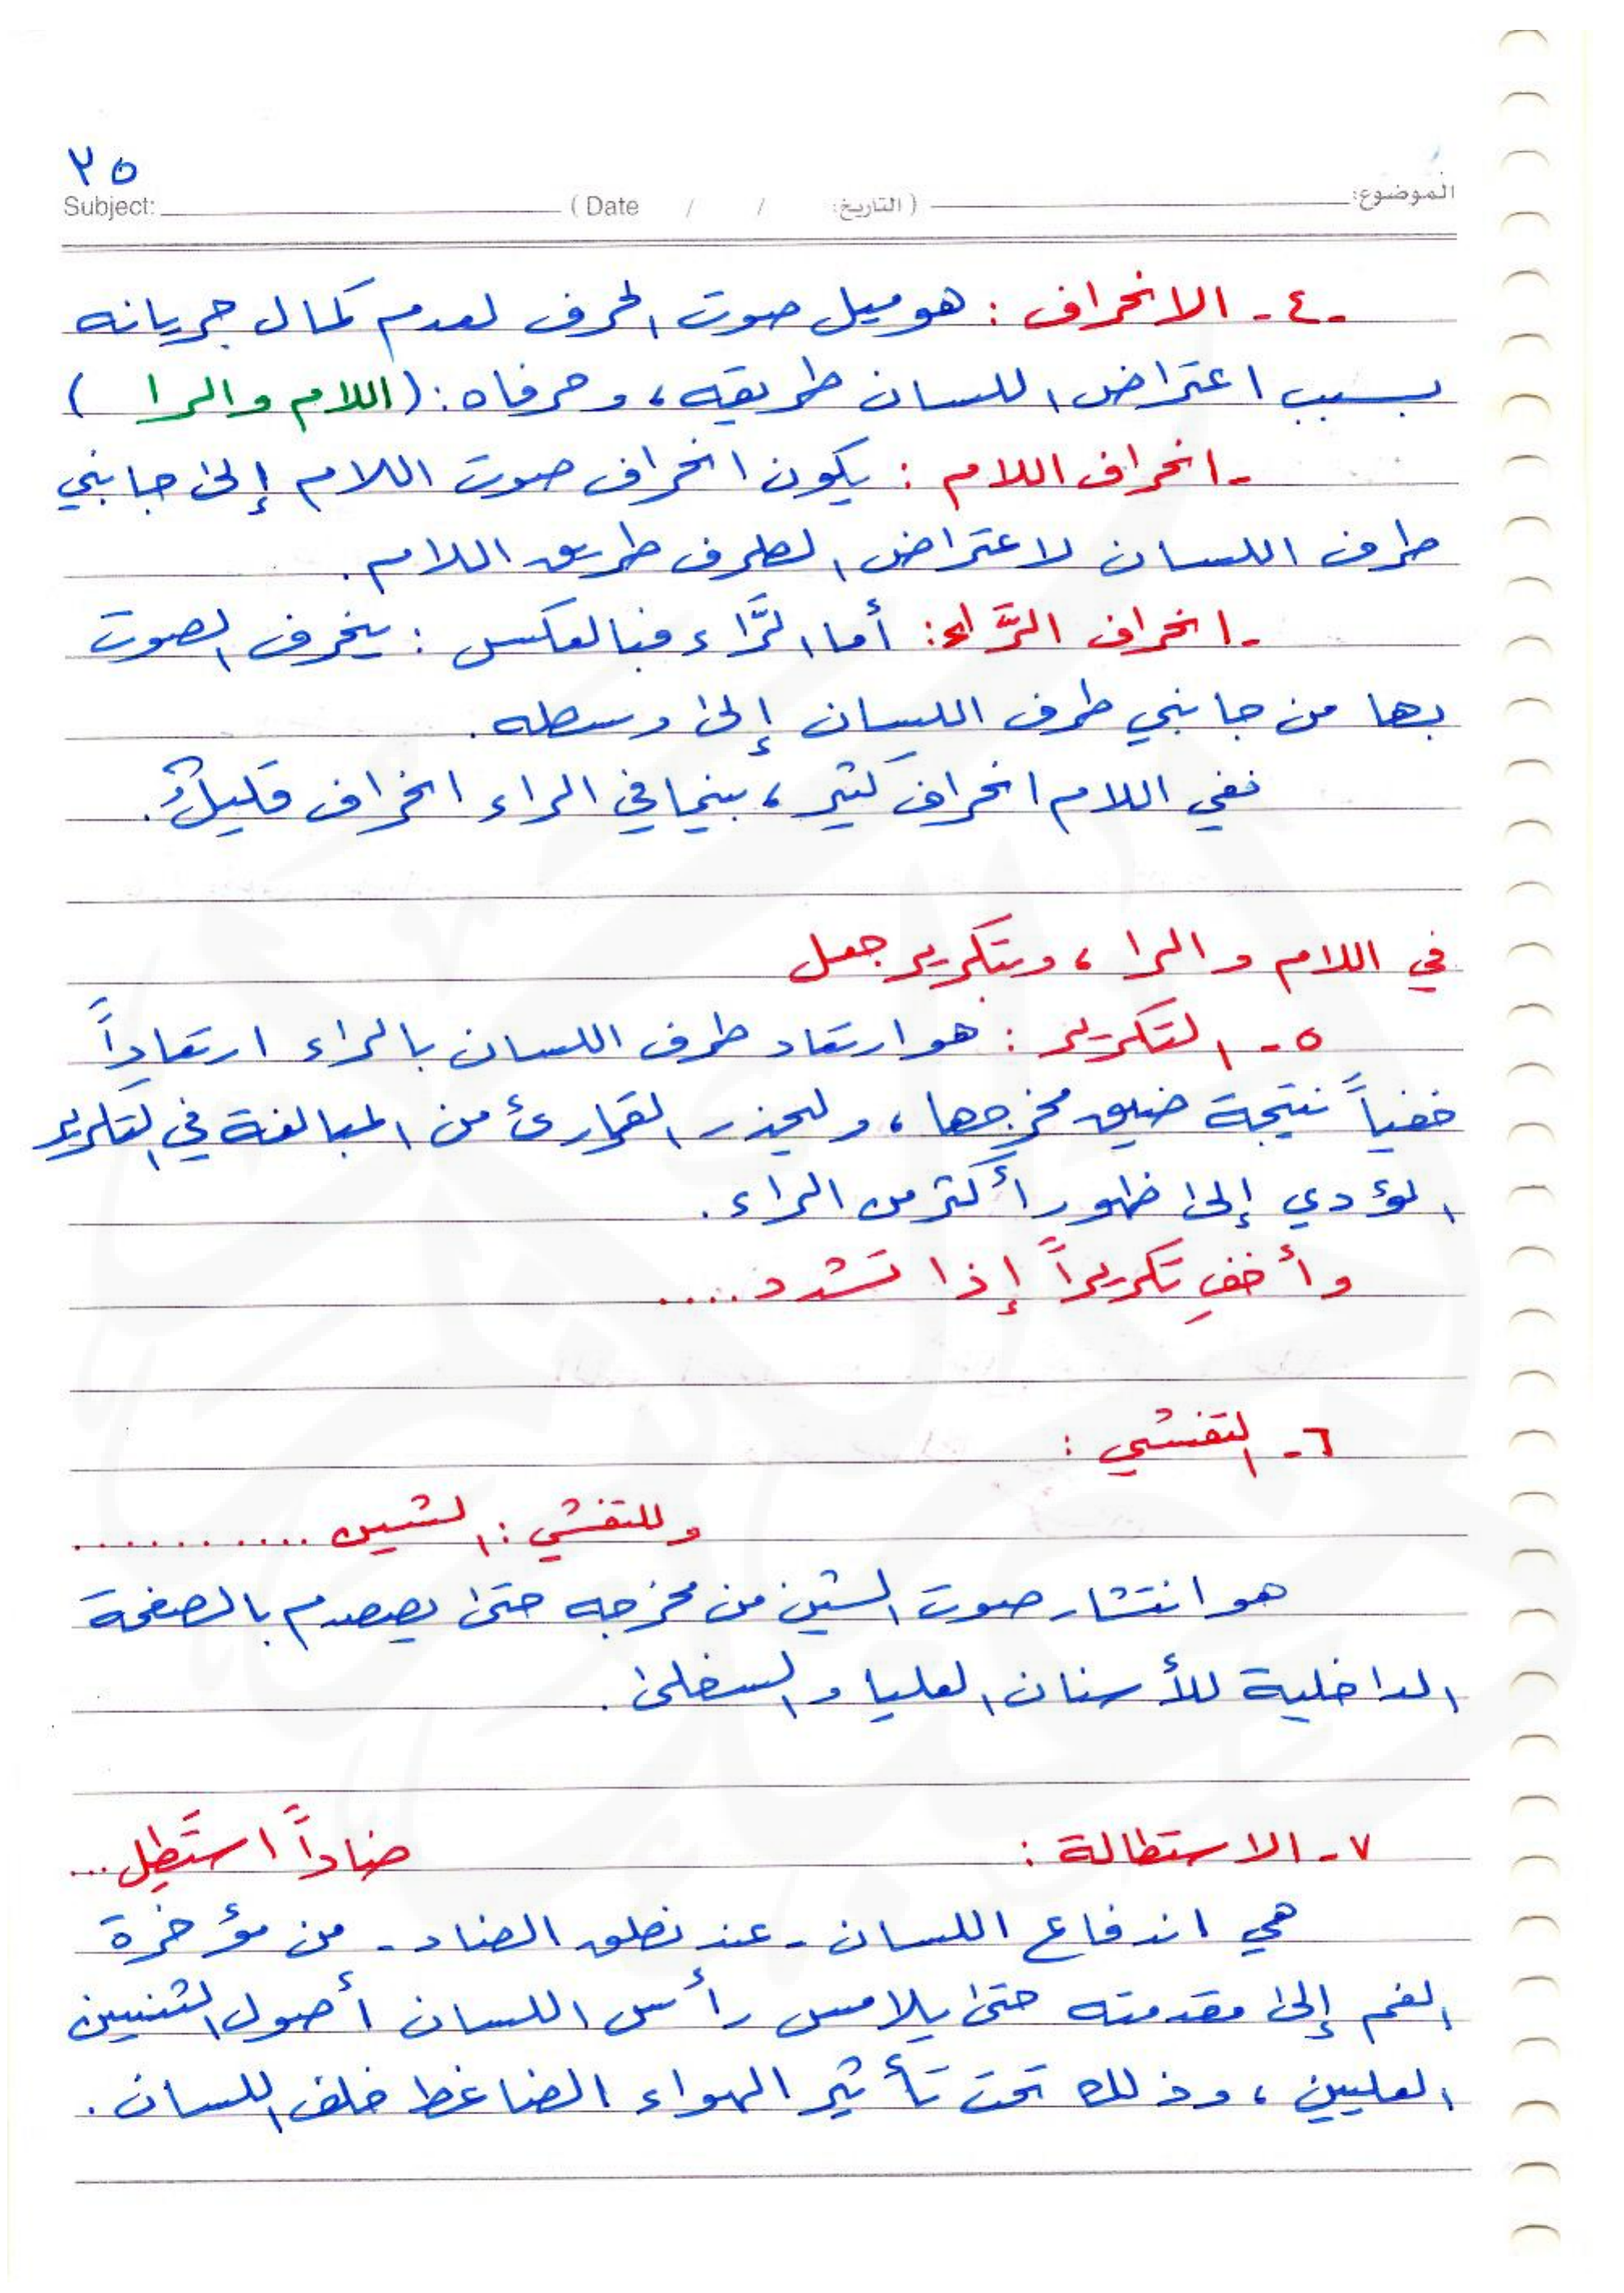 ٢٥
الموضوع: (التاريخ: / / Date) Subject:
٤- الانحراف : هو ميل صوت الحرف لعدم كمال جريانه
بسبب اعتراض اللسان طريقه، وحرفاه: (اللام والرا )
- انحراف اللام : يكون انحراف صوت اللام إلى جانبي
طرف اللسان لاعتراض الطرف طريق اللام.
- انحراف الرَّاء: أما الرَّاء فبالعكس : ينحرف الصوت
بها من جانبي طرف اللسان إلى وسطه.
ففي اللام انحراف كثير، بينما في الراء انحراف قليلٌ.
في اللام والرا، وبتكرير جعل
٥- التكرير : هو ارتعاد طرف اللسان بالراء ارتعاداً
خفياً نتيجة ضيق مخرجها، وليحذر القارئ من المبالغة في التكرير
المؤدي إلى ظهور أكثر من الراء.
وأخفِ تكريراً إذا تشدد....
٦- التفشي :
وللتفشي : الشين ...........
هو انتشار صوت الشين من مخرجه حتى يصدم بالصفحة
الداخلية للأسنان العليا والسفلى.
٧- الاستطالة : ضاداً استَطِل...
هي اندفاع اللسان - عند نطق الضاد - من مؤخرة
الفم إلى مقدمته حتى يلامس رأس اللسان أصول الثنيين
العليين، وذلك تحت تأثير الهواء الضاغط خلف اللسان.